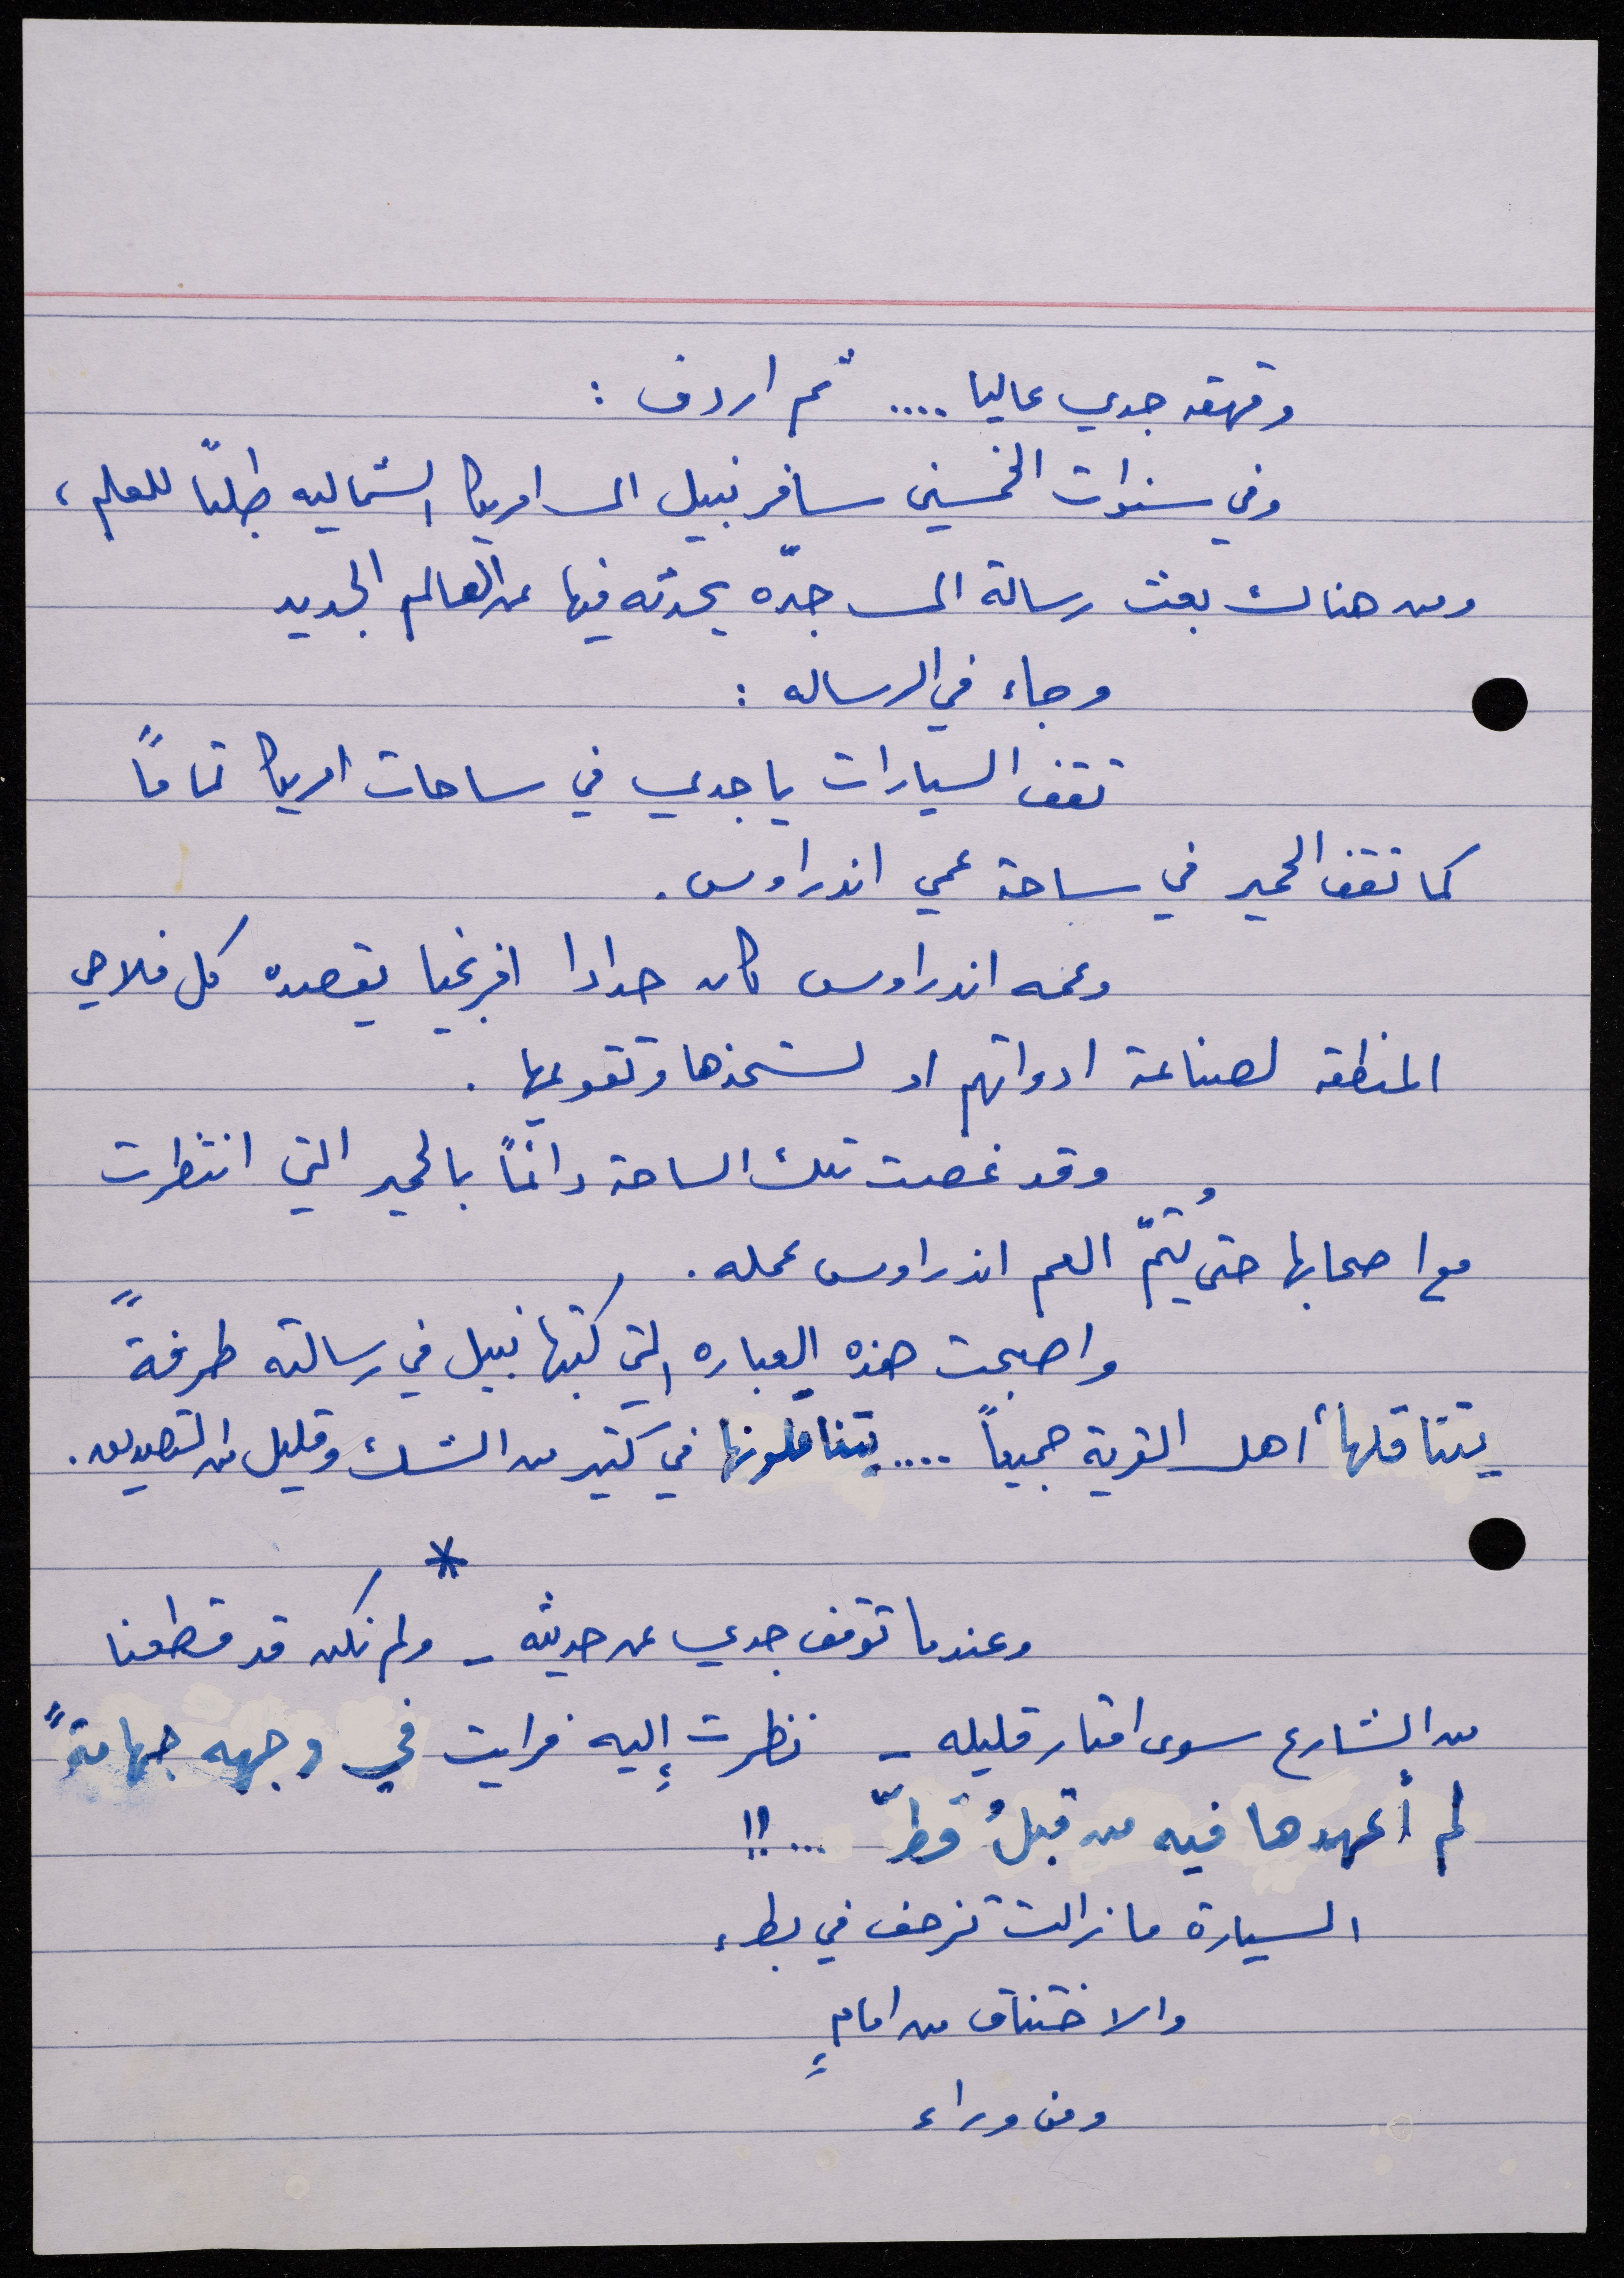 وقهقه جدي عاليا .... ثم اردف :
وفي سنوات الخمسين سافر نبيل الى امريكا الشماليه طلبًا للعلم ،
ومن هناك بعث رسالة الى جدّه يحدثه فيها عن العالم الجديد
وجاء في الرساله :
تقف السيارات يا جدي في ساحات امريكا تمامًا
كما تقف الحمير في ساحة عمي اندراوس .
وعمه اندراوس كان حدادا افرنجيا يقصده كل فلاحي
المنطقه لصناعة ادواتهم او لشحذها وتقويمها .
وقد غصت تلك الساحة دائمًا بالحمير التي انتظرت
مع اصحابها حتى يُتمّ العم اندراوس عمله .
واصبحت هذه العباره التي كتبها نبيل في رسالته طرفةً
يتناقلها أهل القرية جميعاً .... يتناقلونها في كثير من الشك وقليل من التصديق .
*
وعندما توقف جدي عن حديثه - ولم نكن قد قطعنا
من الشارع سوى امتار قليله - نظرت إليه فرايت في وجهه جهامةً
لم أعهدها فيه من قبلُ قطّ ... !!
السيارة ما زالت تزحف في بطء
والاختناق من امامٍ
ومن وراء